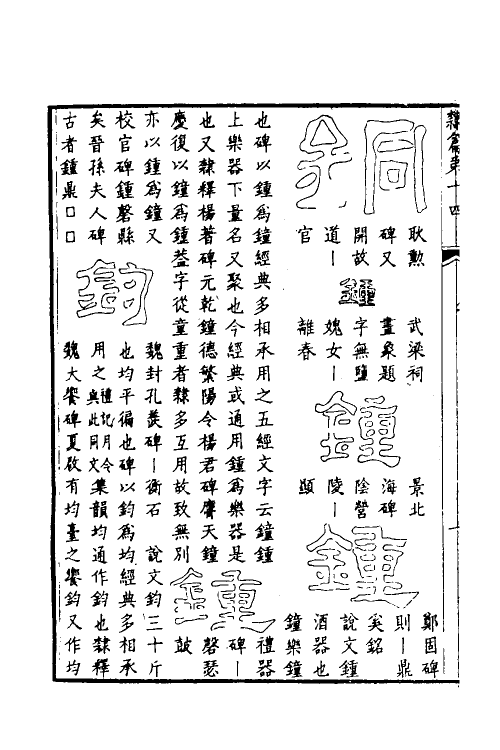 隸篇第十四
一
銅
耿勲
碑又
開故
道｜
官
鍾
武梁祠
畫象題
字無鹽
媿女｜
離春
鍾
景北
海碑
陰營
陵｜
顯
鍾
鄭固碑
則｜鼎
奚銘
說文鍾
酒器也
鐘樂鐘
也碑以鍾為鐘經典多相承用之五經文字云鐘鍾
上樂器下量名又聚也今經典或通用鍾為樂器是
也又隸釋楊著碑元乾鐘德繁陽令楊君碑膺天鐘
慶復以鐘為鍾葢字從童重者隸多互用故致無別
鍾
禮器
碑｜
磬瑟
鼓
亦以鍾為鐘又
校官碑鍾磬縣
矣晉孫夫人碑
古者鍾鼎囗囗
鈞
魏封孔羨碑｜衡石
說文鈞三十斤
也均平徧也碑以鈞為均經典多相承
用之禮記月令與此同文集韻均通作鈞也隸釋
魏大饗碑夏啟有均臺之饗鈞又作均